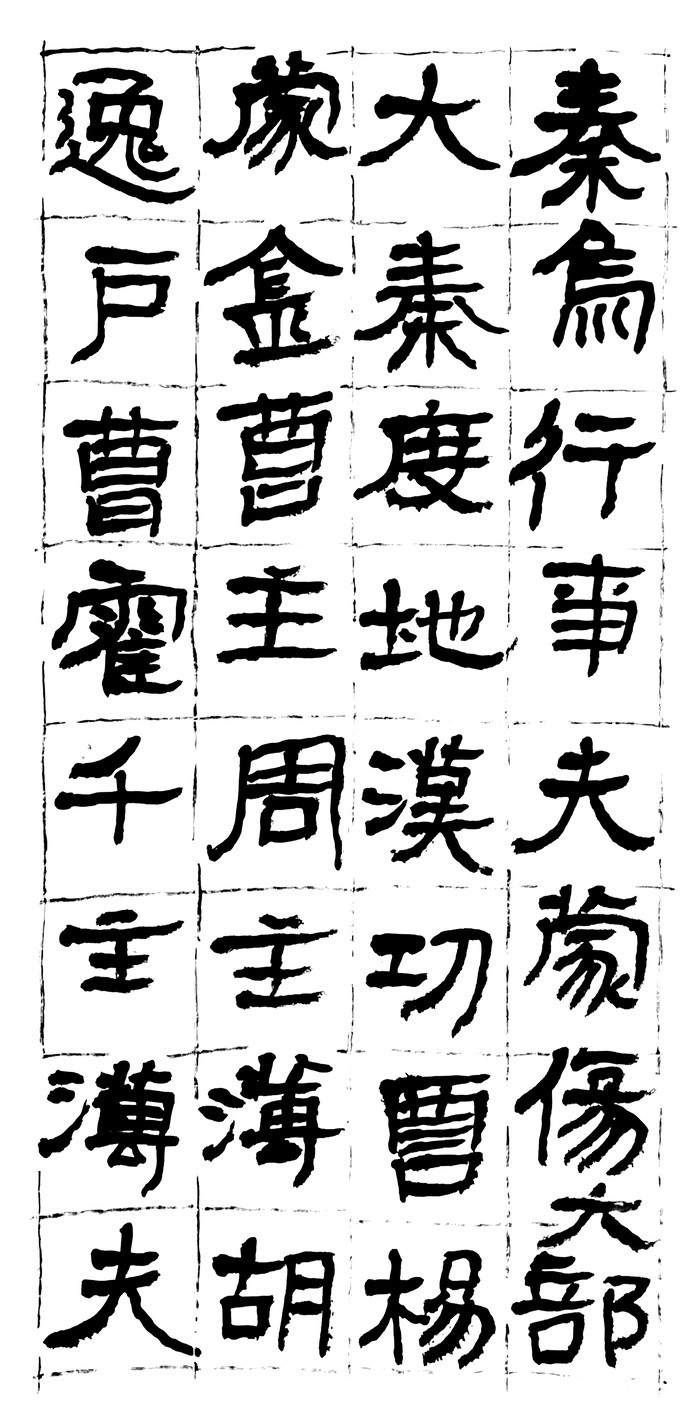 秦烏行事夫蒙傷大部
大秦度地漢功曹楊
蒙盒曹主周主薄胡
逸戶曹霍千主薄夫